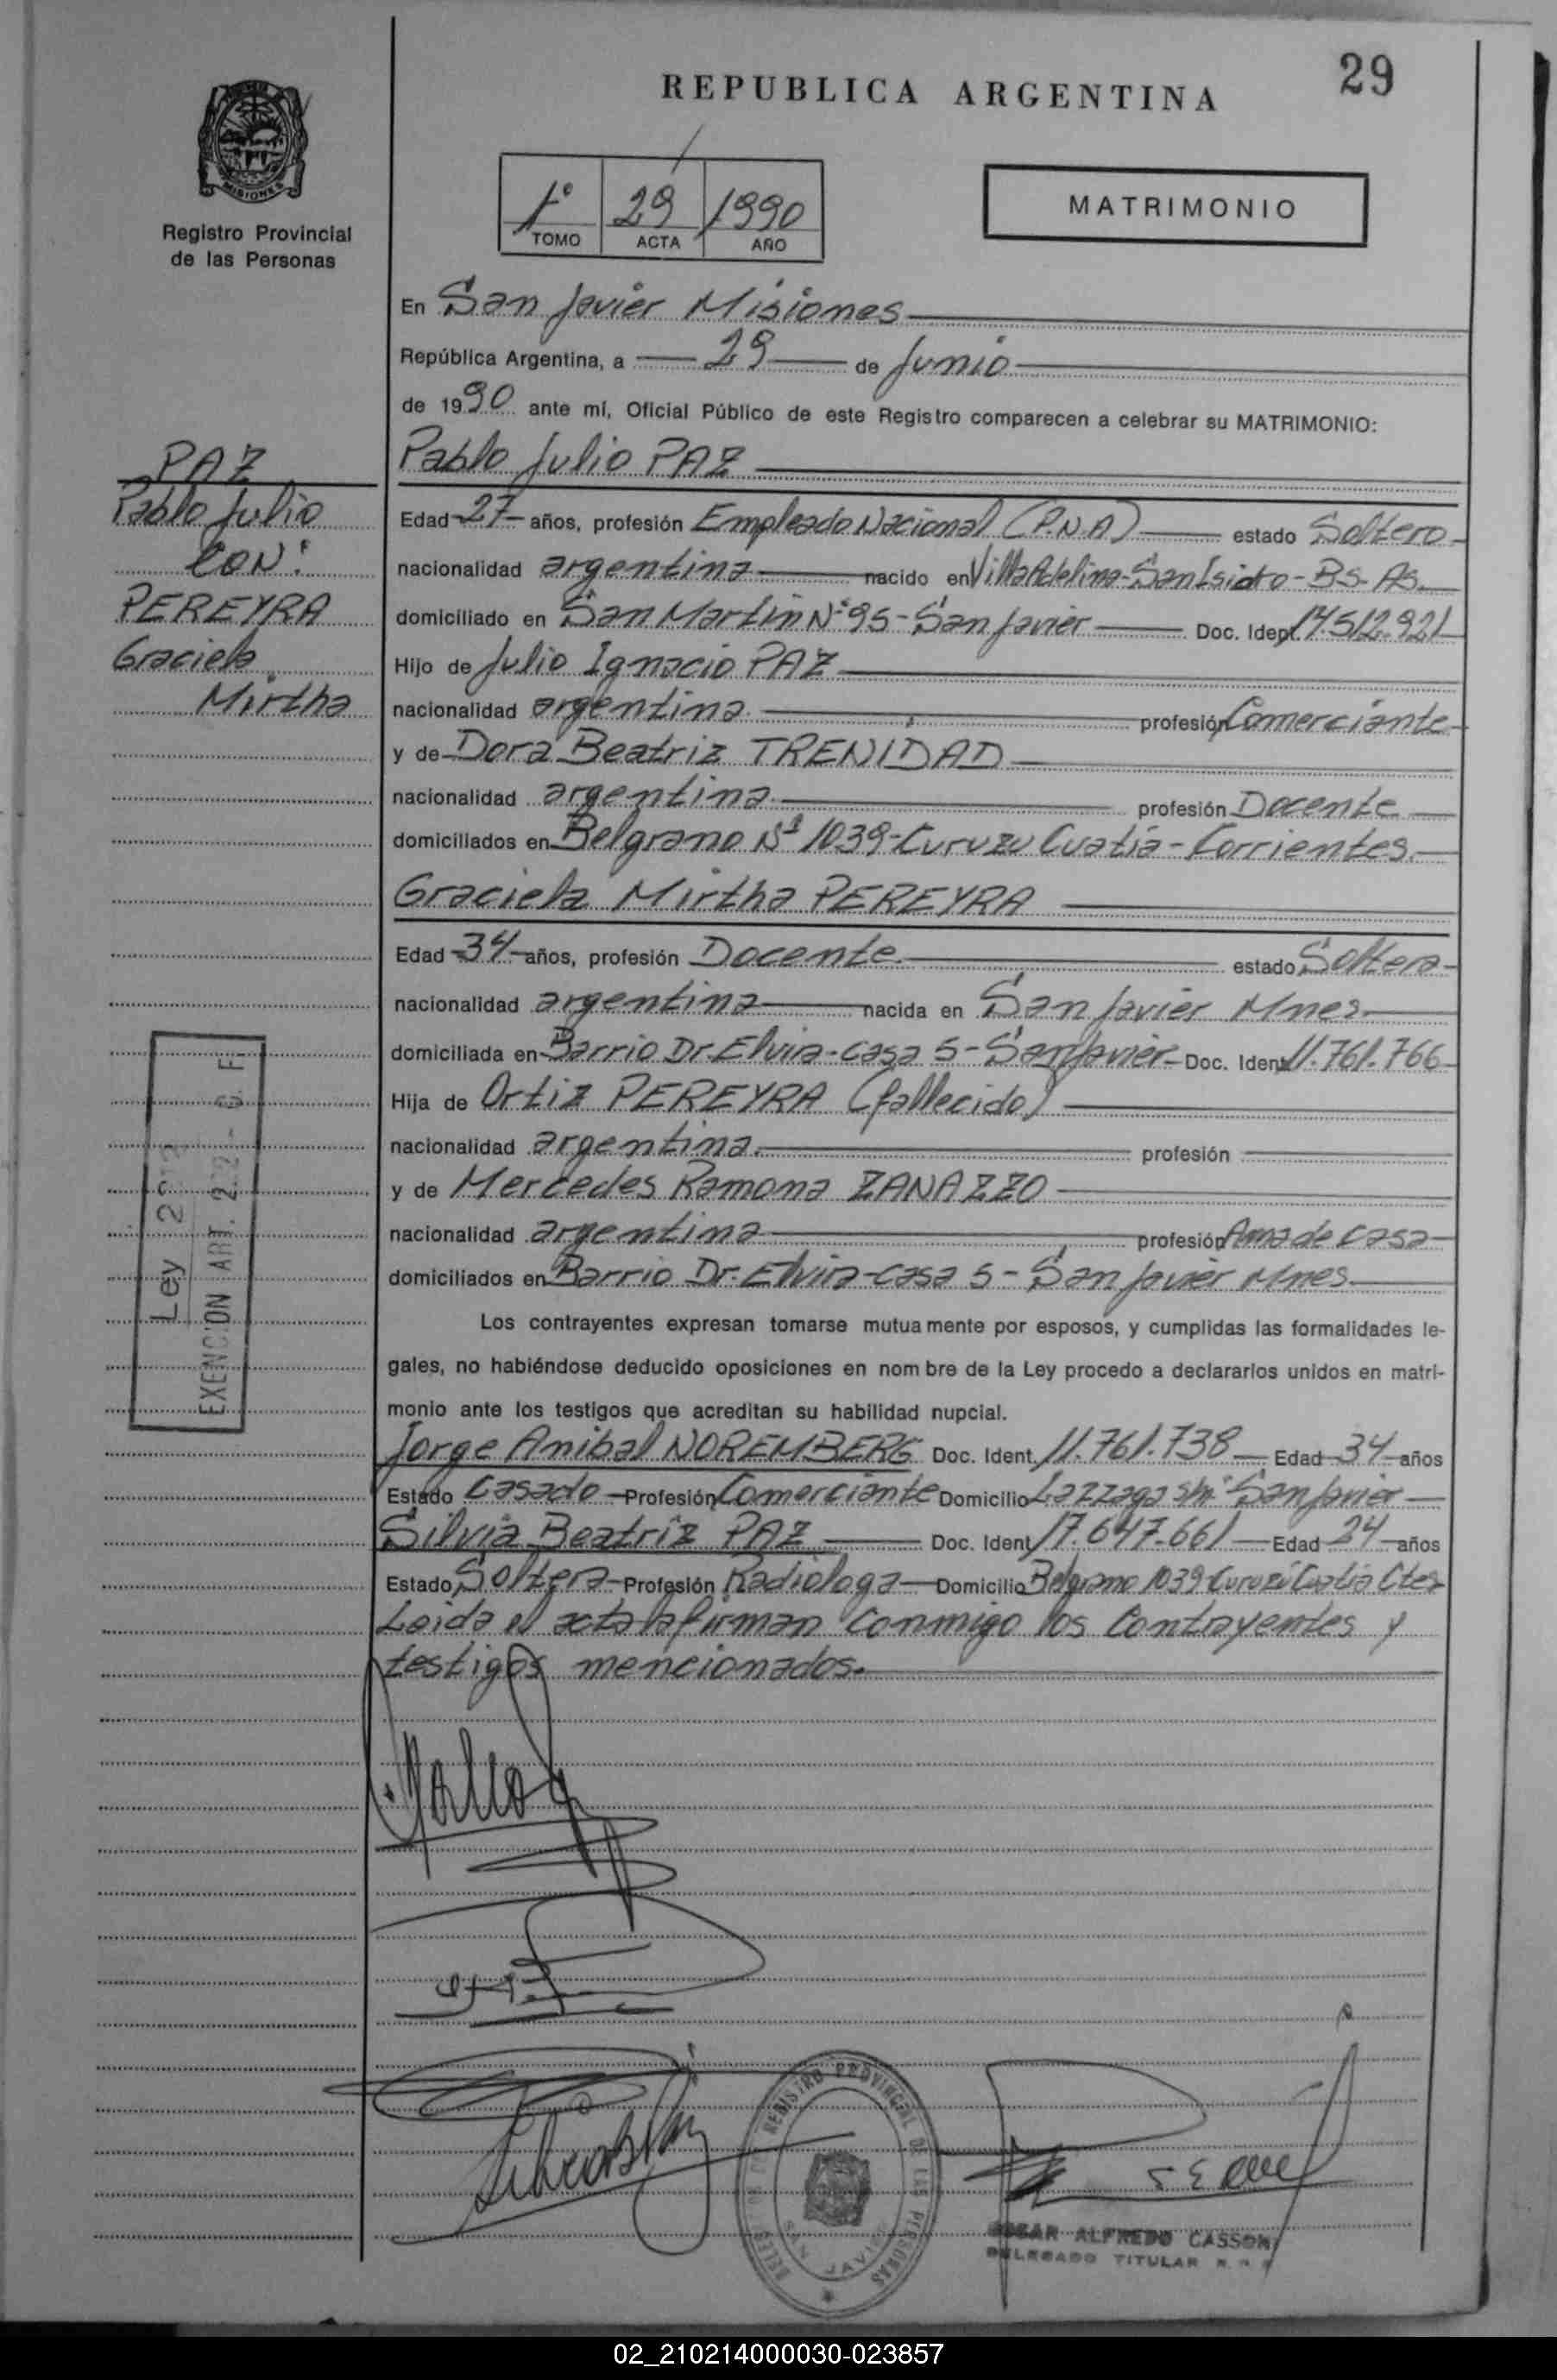 29
REPUBLICA ARGENTINA
MISIONES
Registro Provincial
de las Personas
1° 29 1990
TOMO ACTA AÑO
MATRIMONIO
En San Javier Misiones
República Argentina, a 29 de Junio
de 1990 ante mí, Oficial Público de este Registro comparecen a celebrar su MATRIMONIO:
PAZ
Pablo Julio
CON:
PEREYRA
Graciela
Mirtha
Pablo Julio PAZ
Edad 27 años, profesión Empleado Nacional (P.N.A) estado Soltero
nacionalidad argentina nacido en Villa Adelina-San Isidro-Bs-As.
domiciliado en San Martin N° 95-San Javier Doc. Ident. 14.512.921
Hijo de Julio Ignacio PAZ
nacionalidad argentina. profesión Comerciante
y de Dora Beatriz TRENIDAD
nacionalidad argentina profesión Docente
domiciliados en Belgrano N° 1039-Curuzu Cuatia-Corrientes.
Graciela Mirtha PEREYRA
Edad 34 años, profesión Docente estado Soltera
nacionalidad argentina nacida en San Javier Mnes.
domiciliada en Barrio Dr. Elvira-casa 5-San Javier Doc. Ident. 11.761.766
Hija de Ortiz PEREYRA (fallecido)
nacionalidad argentina. profesión
y de Mercedes Ramona ZANAZZO
nacionalidad argentina profesión Ama de casa
domiciliados en Barrio Dr. Elvira-casa 5-San Javier Mnes.
Ley
EXENCION ART. 22 - C. F.
Los contrayentes expresan tomarse mutuamente por esposos, y cumplidas las formalidades le-
gales, no habiéndose deducido oposiciones en nombre de la Ley procedo a declararlos unidos en matri-
monio ante los testigos que acreditan su habilidad nupcial.
Jorge Anibal NOREMBERG Doc. Ident. 11.761.738 Edad 34 años
Estado Casado Profesión Comerciante Domicilio Lazzaga s/n° San Javier
Silvia Beatriz PAZ Doc. Ident 17.647.661 Edad 24 años
Estado Soltera Profesión Radiologa Domicilio Belgrano 1039 Curuzú Cuatia Ctes
Leida el acta la firman conmigo los contrayentes y
testigos mencionados.
REGISTRO PROVINCIAL DE LAS PERSONAS
SAN JAVIER
OSCAR ALFREDO CASSONI
DELEGADO TITULAR
02_210214000030-023857